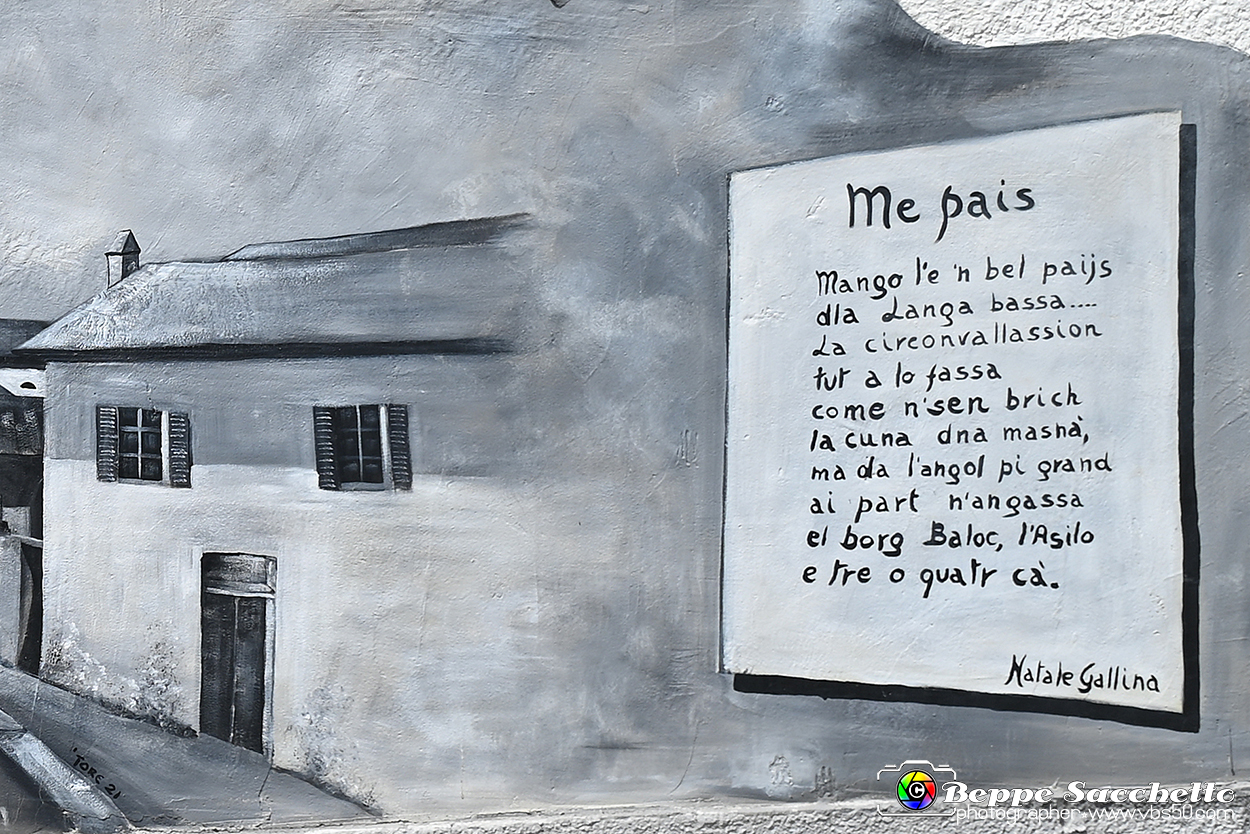 Me pais
Mango l'e 'n bel paijs
dla Langa bassa....
La circonvallassion
tut a lo fassa
come n'sen brich
la cuna dna masnà,
ma da l'angol pi grand
ai part n'angassa
el borg Baloc, l'Asilo
e tre o quatr cà.
Natale Gallina
'TORE 21
Beppe Sacchetto
photographer-www.vbs50.com